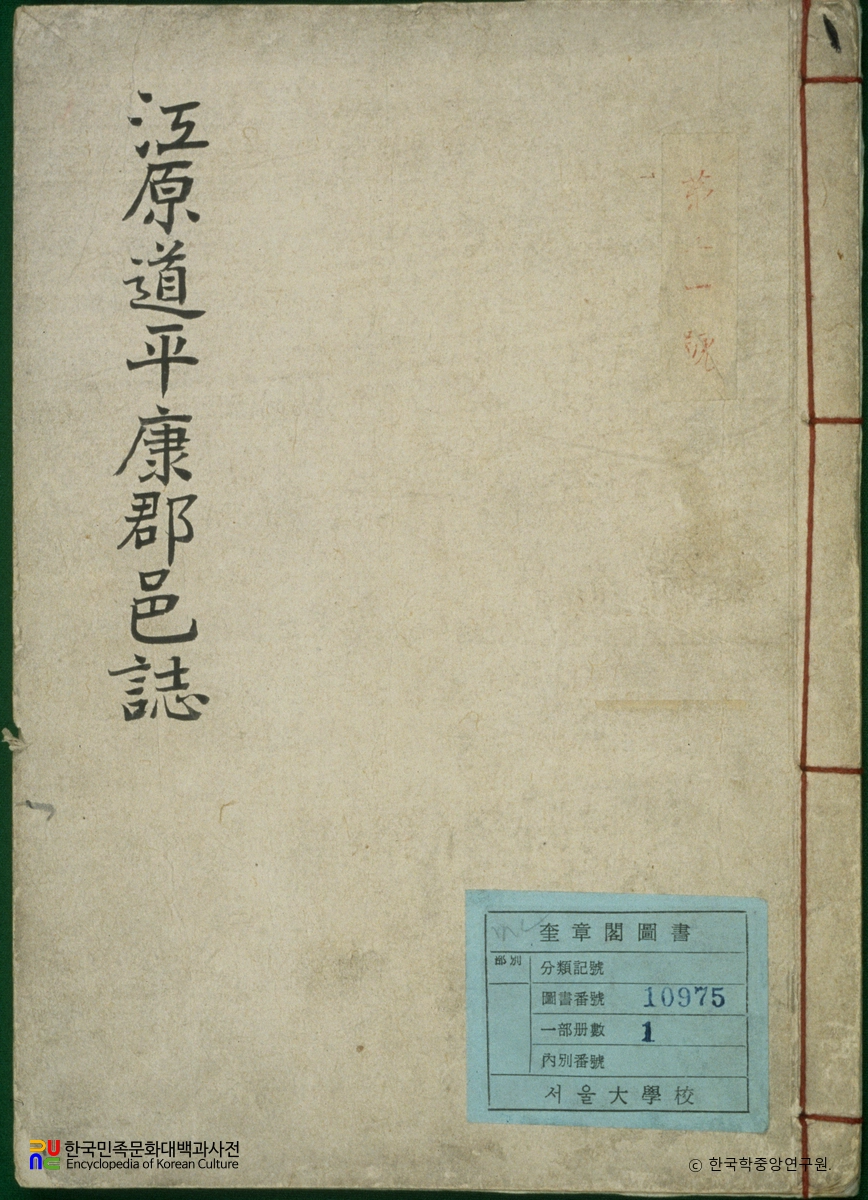 江原道平康郡邑誌
奎章閣圖書
部別
分類記號
圖書番號 10975
一部册數 1
內別番號
서울大學校
한국민족문화대백과사전
Encyclopedia of Korean Culture
ⓒ 한국학중앙연구원.